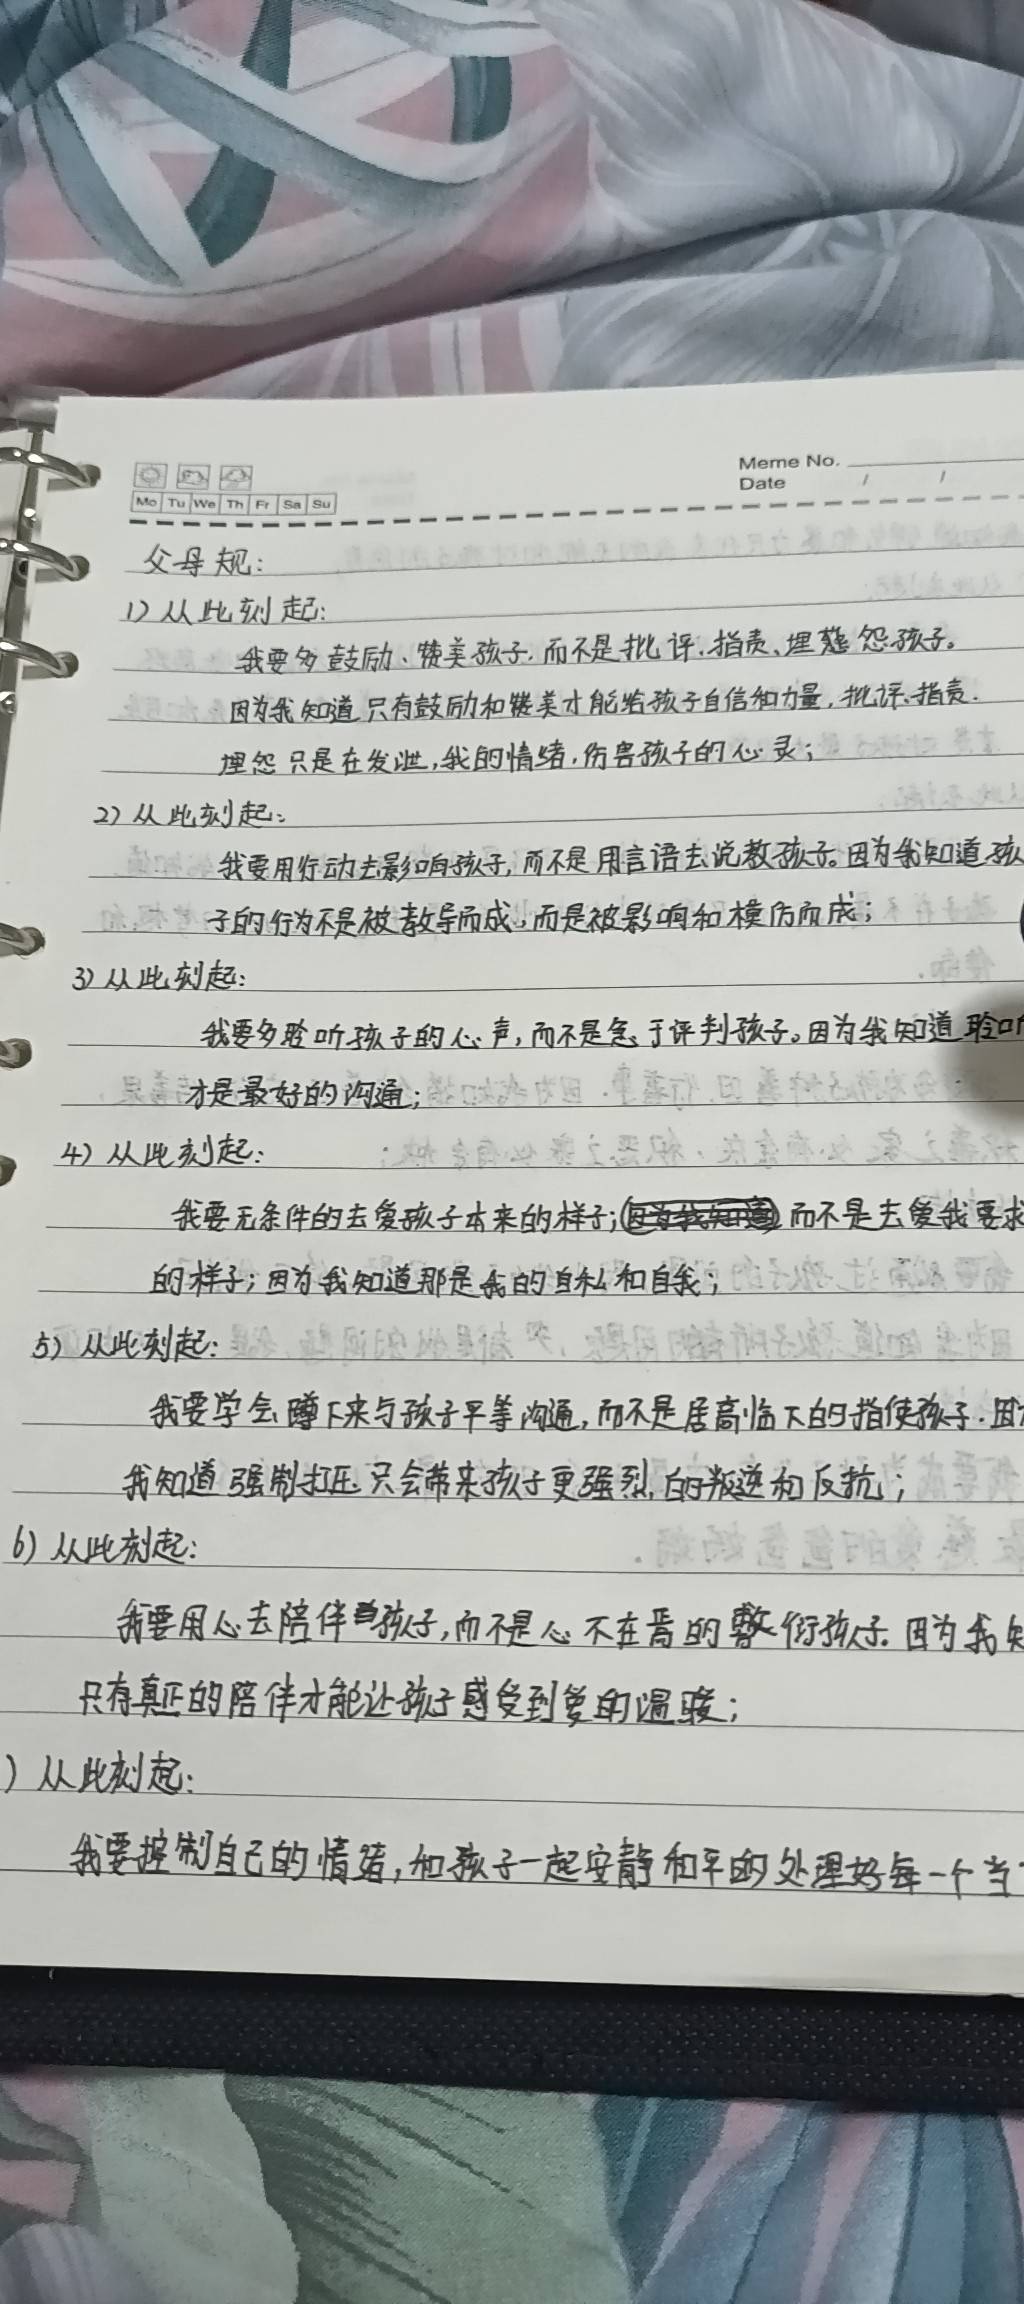 Meme No.
Date / /
Mo Tu We Th Fr Sa Su
父母规:
1) 从此刻起:
我要多鼓励、赞美孩子,而不是批评、指责、埋怨孩子。
因为我知道只有鼓励和赞美才能给孩子自信和力量,批评、指责、
埋怨只是在发泄,我的情绪,伤害孩子的心灵;
2) 从此刻起:
我要用行动去影响孩子,而不是用言语去说教孩子。因为我知道孩
子的行为不是被教导而成,而是被影响和模仿而成;
3) 从此刻起:
我要多聆听孩子的心声,而不是急于评判孩子。因为我知道聆听
才是最好的沟通;
4) 从此刻起:
我要无条件的去爱孩子本来的样子;而不是去爱我要求
的样子;因为我知道那是我的自私和自我;
5) 从此刻起:
我要学会蹲下来与孩子平等沟通,而不是居高临下的指使孩子.因为
我知道强制打压只会带来孩子更强烈的叛逆和反抗;
6) 从此刻起:
我要用心去陪伴孩子,而不是心不在焉的敷衍孩子.因为我知
只有真正的陪伴才能让孩子感受到爱的温暖;
) 从此刻起:
我要控制自己的情绪,和孩子一起安静和平的处理好每一个当